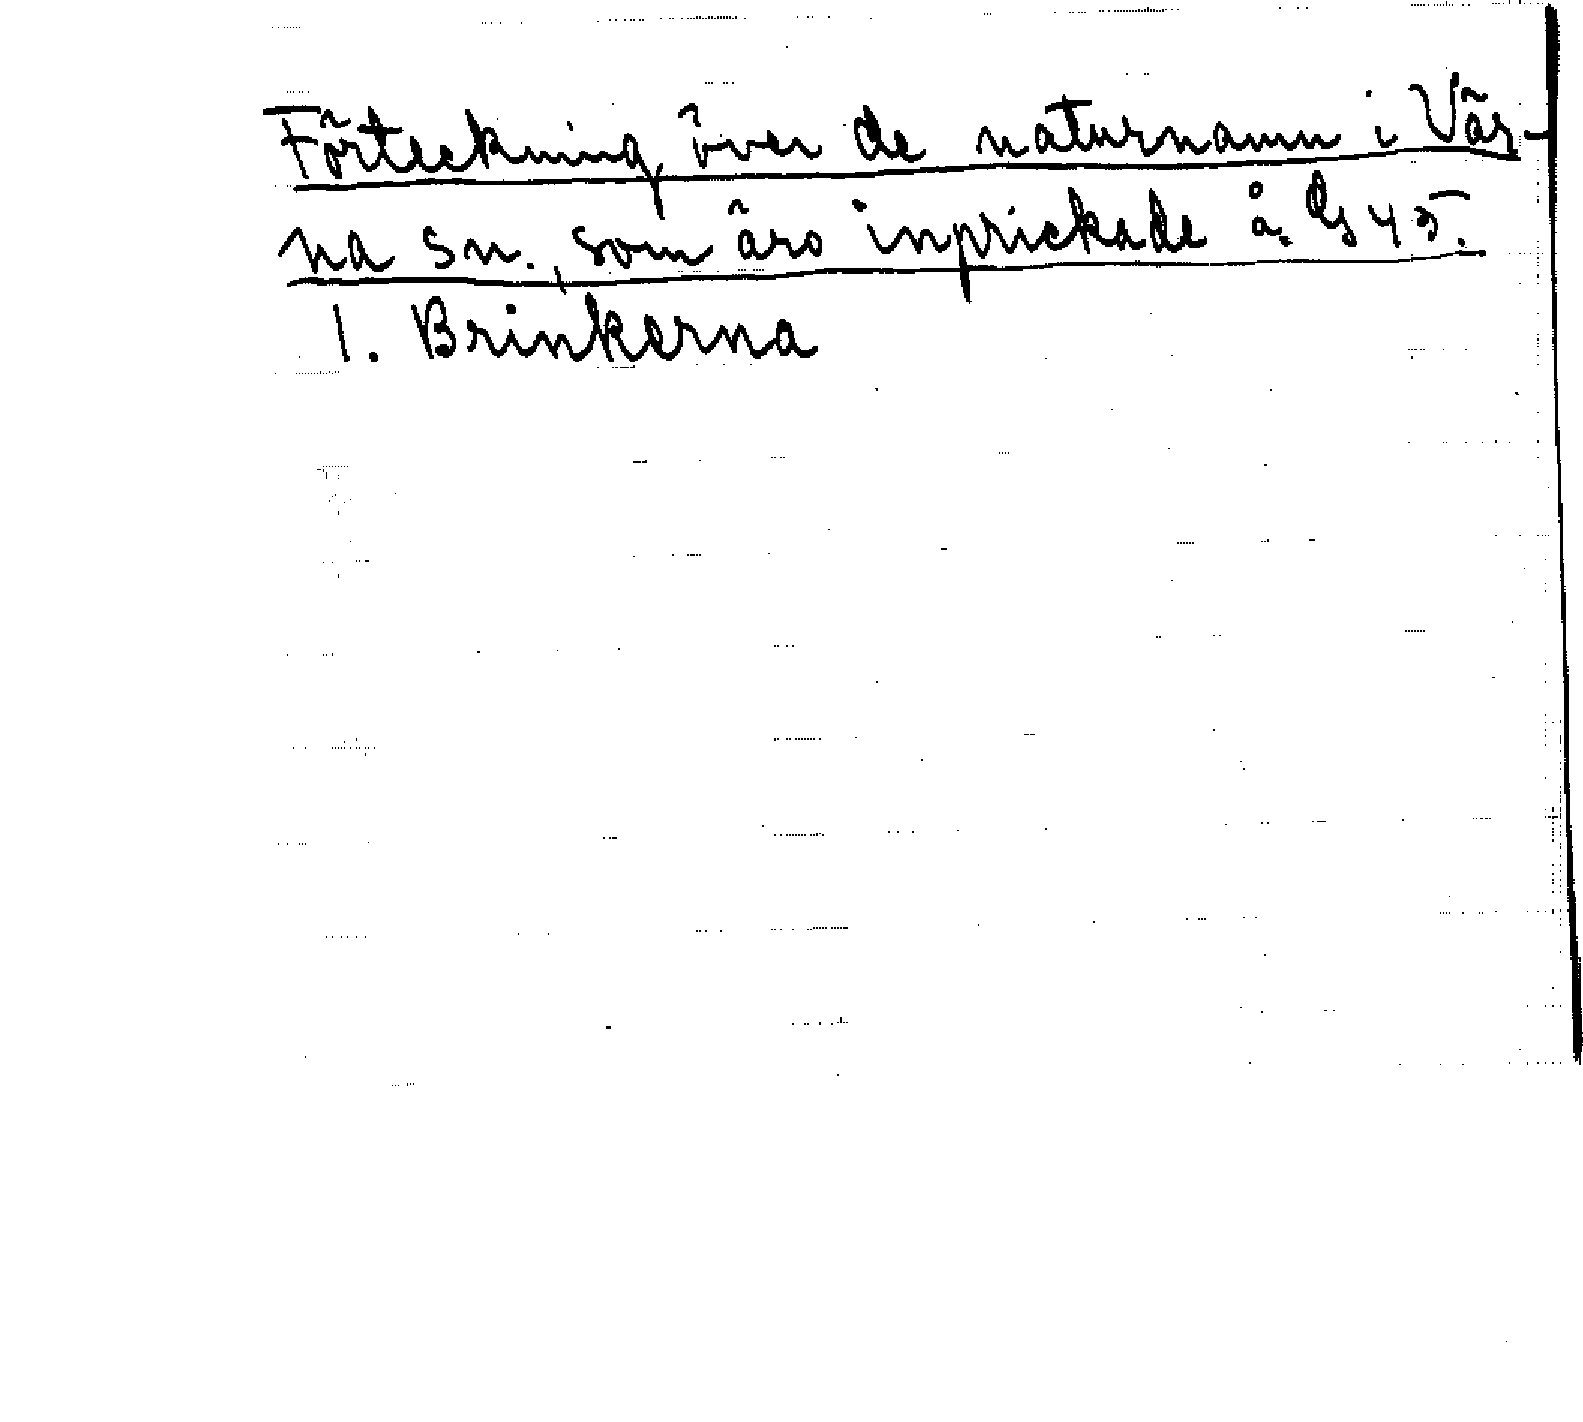 Förteckning över de naturnamn i Vår-
na sn., som äro inprickade å Gs 45.
1. Brinkerna